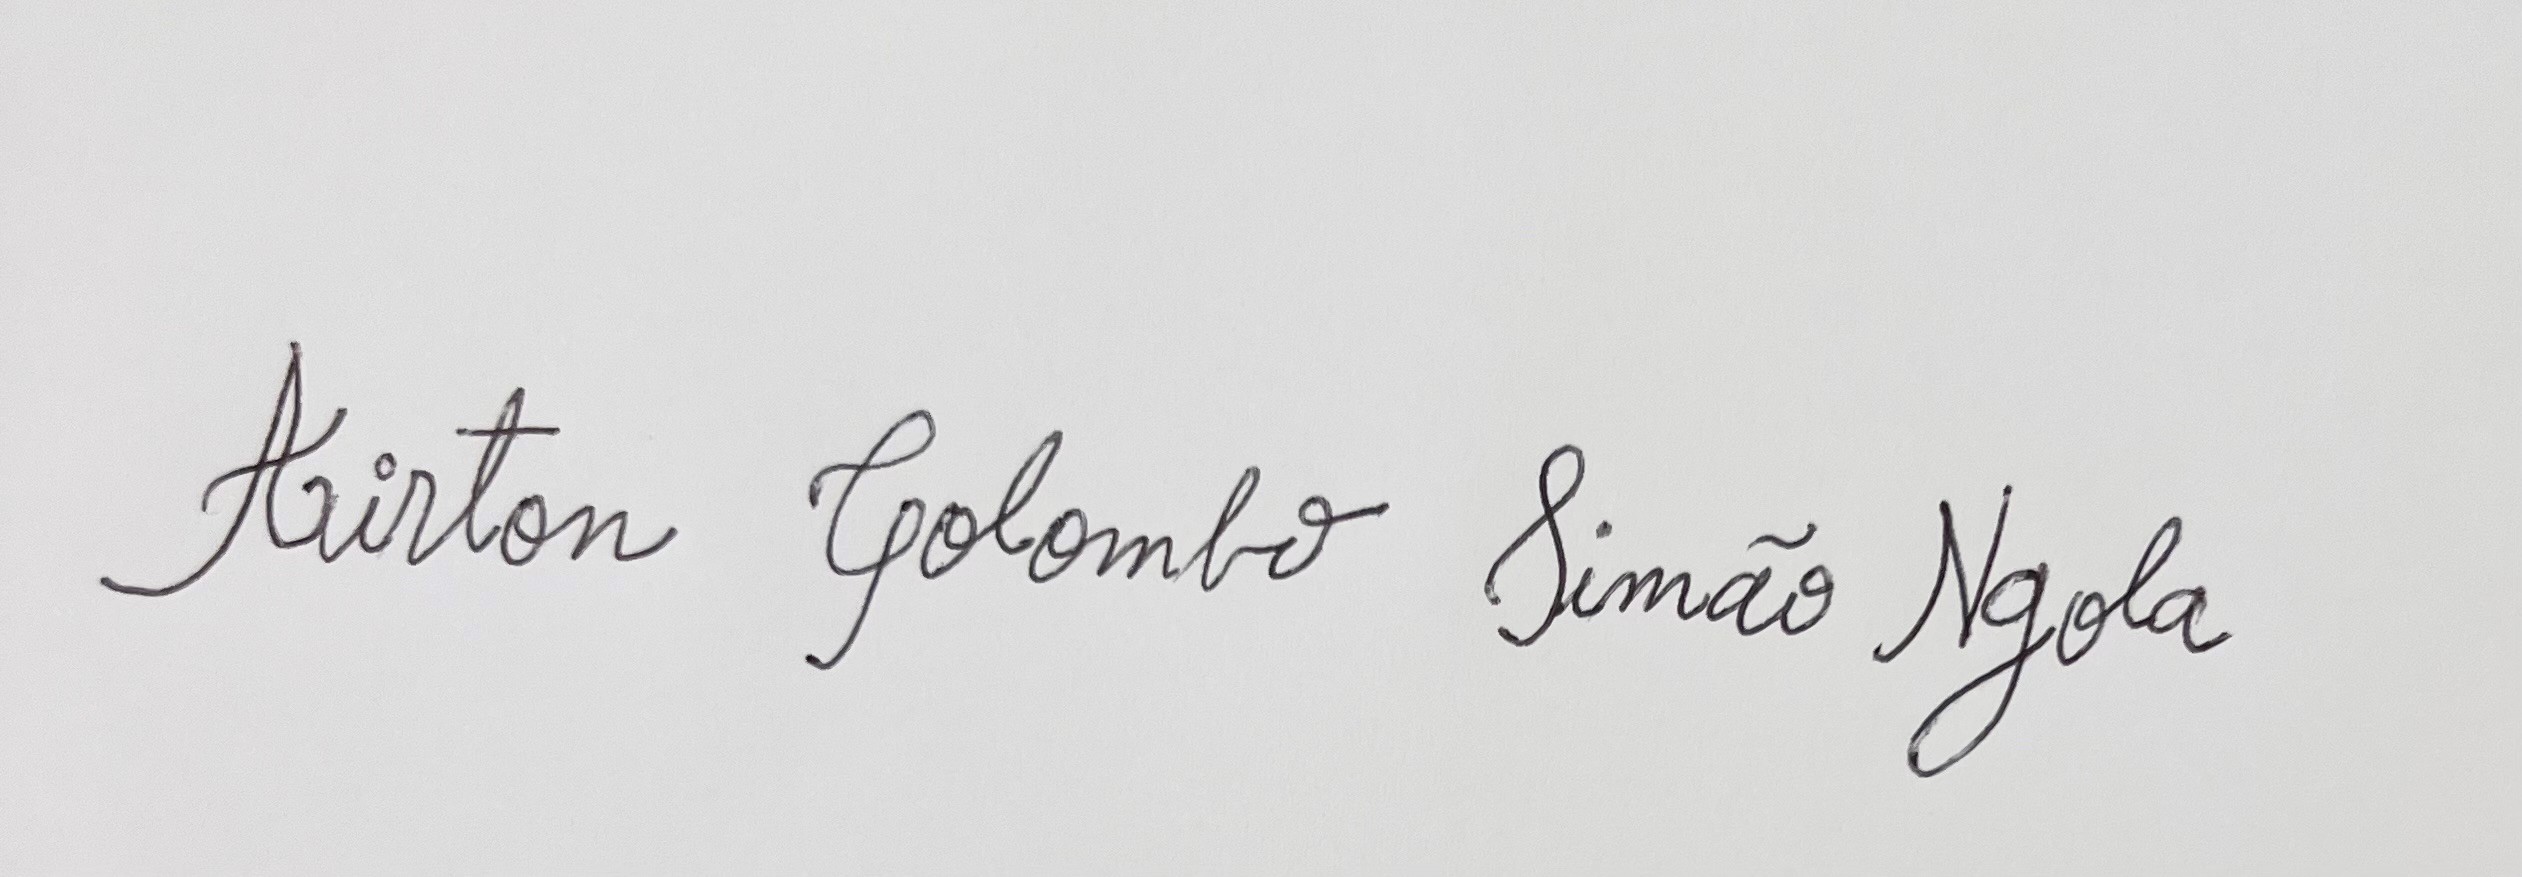 Airton Golombo Simão Ngola